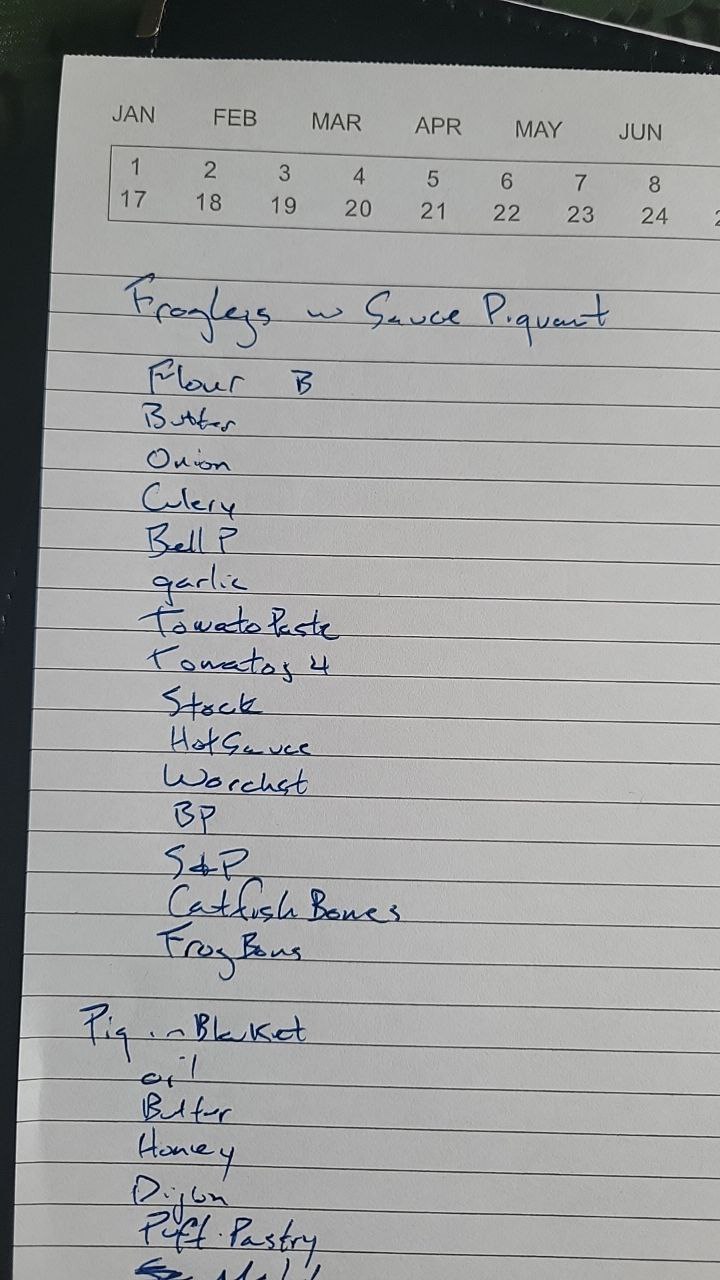 JAN FEB MAR APR MAY JUN
1 2 3 4 5 6 7 8
17 18 19 20 21 22 23 24
Froglegs w Sauce Piquant
Flour B
Butter
Onion
Celery
Bell P
garlic
Tomato Paste
Tomatos 4
Stock
Hot Sauce
Worchst
BP
S&P
Catfish Bones
Frog Bons
Pig in Blanket
oil
Butter
Honey
Dijon
Puff Pastry